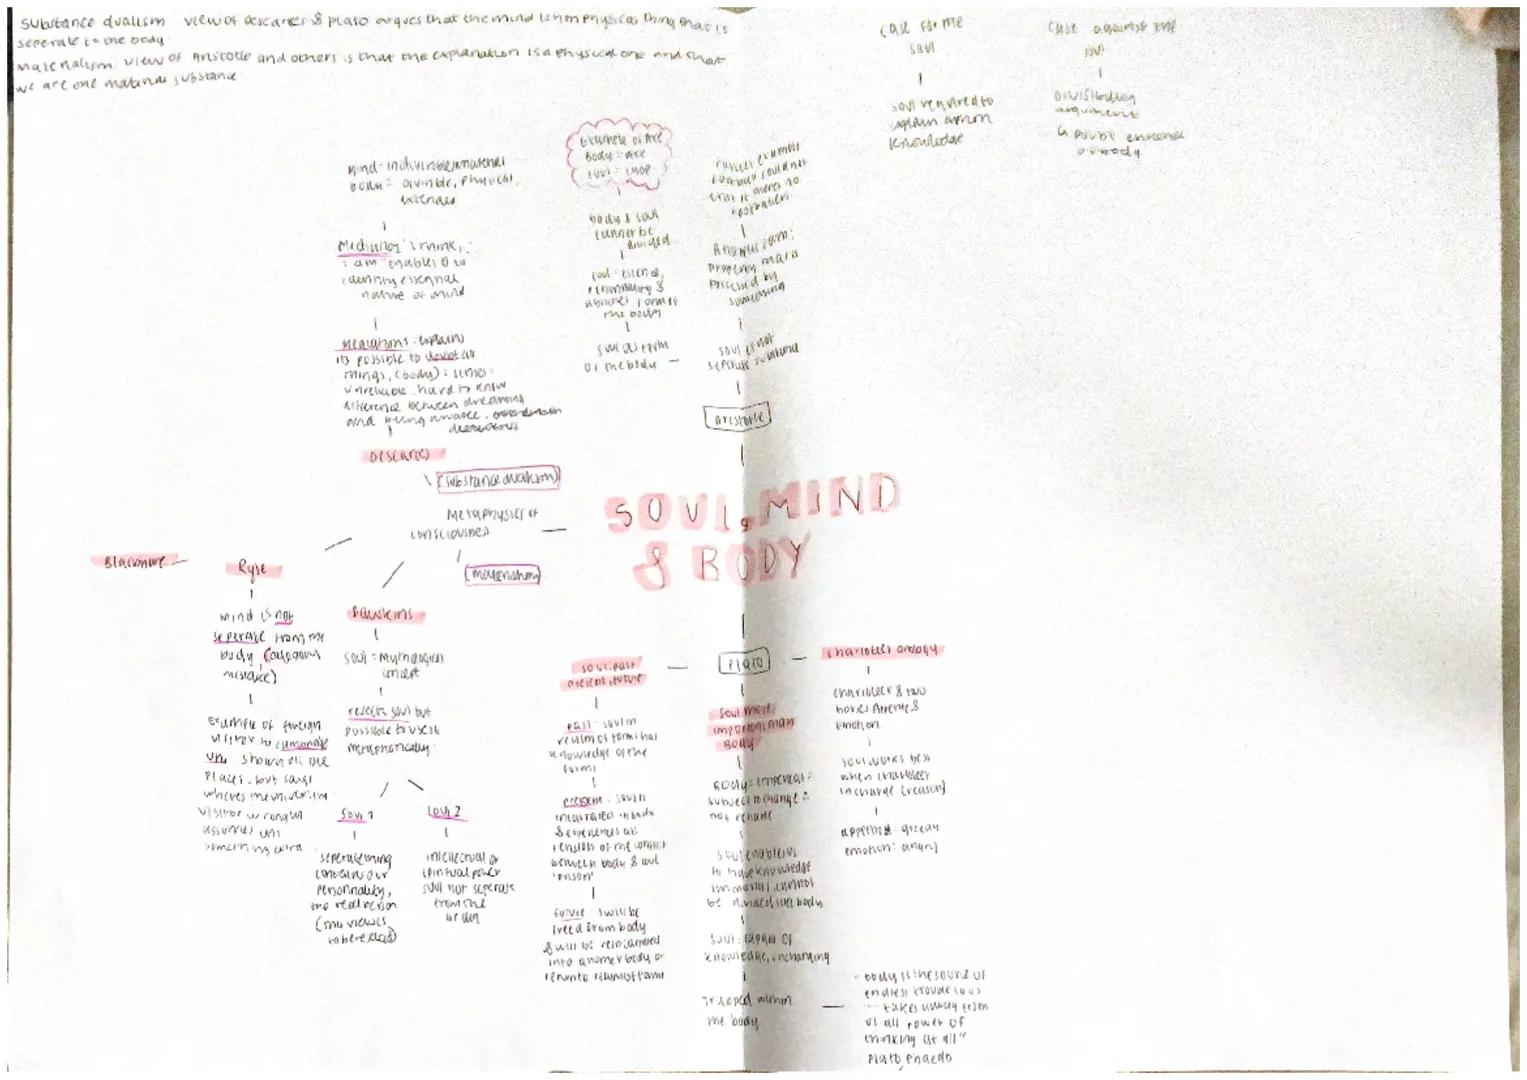 Substance dualism view of descartes & plato argues that the mind is non physical thing that is
seperate to the body
materialism view of Aristotle and others is that the explanation is a physical one and that
we are one material substance
case for the
soul
soul required to
explain
knowledge
case against the
soul
argument
body
mind = indivisible immaterial
body = divisible, physical,
extended
Meditations 'I think,
I am' enables D to
identify essential
nature of mind
Meditations: explains
its possible to doubt all
things, (body): senses
unreliable. hard to know
difference between dreaming
and being awake.
Descartes
(substance dualism)
Metaphysics of
consciousness
(materialism)
Example of Axe
Body = axe
soul = chop
body & soul
cannot be
divided
soul = essence,
personality &
abilities form of
the body
soul as form
of the body
soul is not
seperate substance
Aristotle
SOUL, MIND
& BODY
Blackmore
Ryle
mind is not
seperate from the
body (category
mistake)
Example of foreign
visitor to cambridge
uni, shown all the
places, but says
wheres the university
visitor wrongly
assumes uni
something extra
Dawkins
soul = Mythological
concept
rejects soul but
possible to use it
metaphorically
Soul 1
seperate thing
contains our
personality,
the real person
(this view is
to be rejected)
Soul 2
intellectual or
spiritual power
soul not seperate
from the
brain
Plato
soul: past
present, future
past: soul in
realm of forms has
knowledge of the
forms
present: soul in
incarnated in body
& experiences all
tension of the conflict
between body & soul
'prison'
future: soul be
freed from body
& will be reincarnated
into another body or
return to realm of forms
Soul more
important than
Body
Body = empirical =
subject to change =
not reliable
soul enables us
to have knowledge
immortal, cannot
be divided like body
soul: capable of
knowledge, unchanging
Trapped within
the body
charioteer analogy
charioteer & two
horses Appetite &
emotion
soul works best
when charioteer
in charge (reason)
appetite: greedy
emotion: angry
- body is the source of
endless trouble to us
takes away from
us all power of
thinking at all"
Plato phaedo